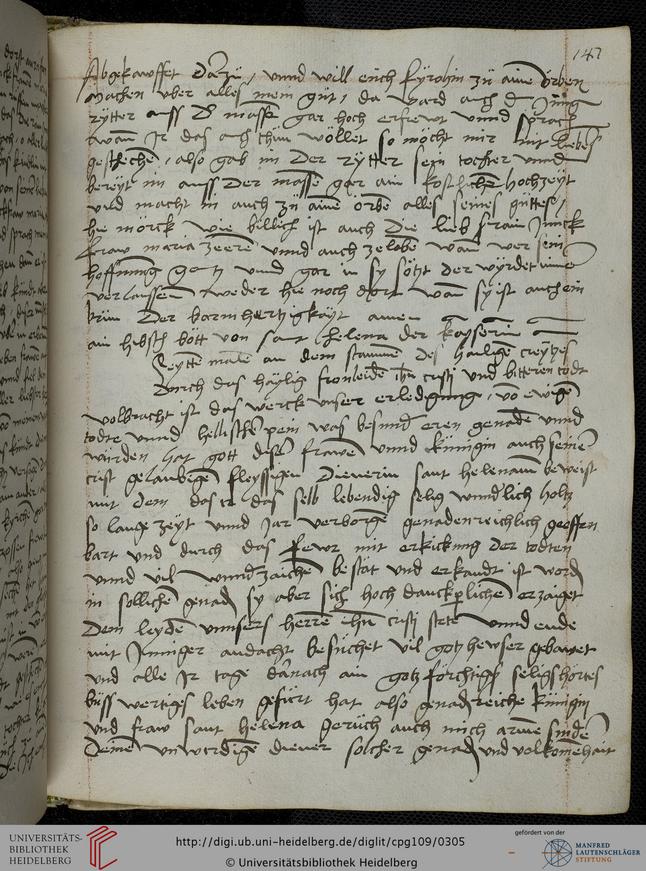 147
Abgekawffet Darzu / vnnd will euch fürohin zu aim Erben
machen vber alles mein gut / da ward auch d Jung
rytter auss d massen gar hoch erfrewt vnnd sprach
wan Jr das auch thun wöllet so möcht mir nit liebers
geschechen / also gab im der rytter sein tochter vnnd
bereyt im auss der masse gar ain kostlichen hochzeyt
vnd macht in auch zu aime örbe alles seines guttes /
hie mörck wie billich ist auch die lieb frau Junck
fraw maria zeere vnnd auch zelobe wan wer sein
hoffnung gantz vnnd gar in sy sötzt der würdet nimer
verlaussen weder hie noch dort wan sy ist auch ein
brun der barmhertzigkayt amen
ain hibsch bött von sant helena der kayserin
seytte male an dem stamme des hailigen creytzes
Durch das haylig fronleiden ihu cristi vnd bitteren todt
volbracht ist das werck vnser erledgung / vo ewige
todte vnnd hellische pein was besund eren genade vnnd
würden hat gott diser frawe vnnd künigin auch seine
crist gelaubigen fleyssigen Dienerin sant helenam beweist
mit dem das er das selb lebendig selig wundlich holtz
so lange zeyt vnnd Jar verborge genadenreichlich geoffen
bart vnd durch das fewr mit erkickung der todten
vnnd vil wundzaichen bestät vnd erkandt ist word
in sollichen genad sy aber sich hoch danckperlichen erzaiget
Dem leyde vnnsers herre ihu cristi stete vnnd ende
mit Jnniger andacht besuchet vil gotzhewser gebawet
vnd alle Jr tage darnach ain gotzförchtigs seligs hörtes
büsswertiges leben gefürt hat also genadreiche künigin
vnd fraw sant helena geruch auch mich arme sinde
Deine vnwirdige diener solcher genad vnd volkomehait
UNIVERSITÄTS-
BIBLIOTHEK
HEIDELBERG
http://digi.ub.uni-heidelberg.de/diglit/cpg109/0305
© Universitätsbibliothek Heidelberg
gefördert von der
MANFRED
LAUTENSCHLÄGER
STIFTUNG